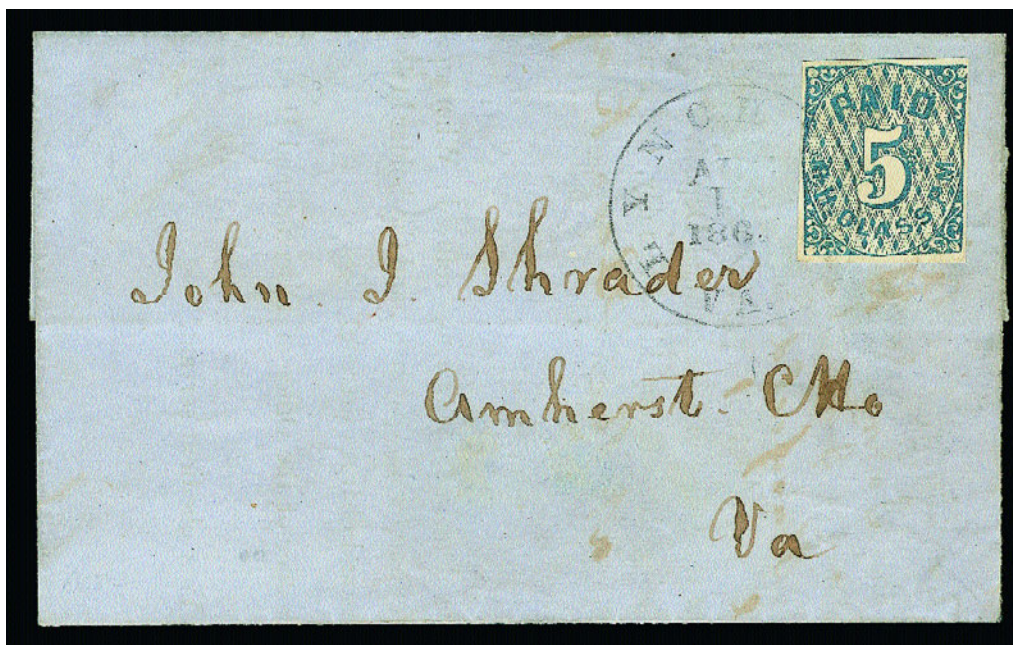 PAID
5
R.H. GLASS P.M.
LYNCH
1
186
VA.
John. J. Shrader
Amherst. CHo
Va